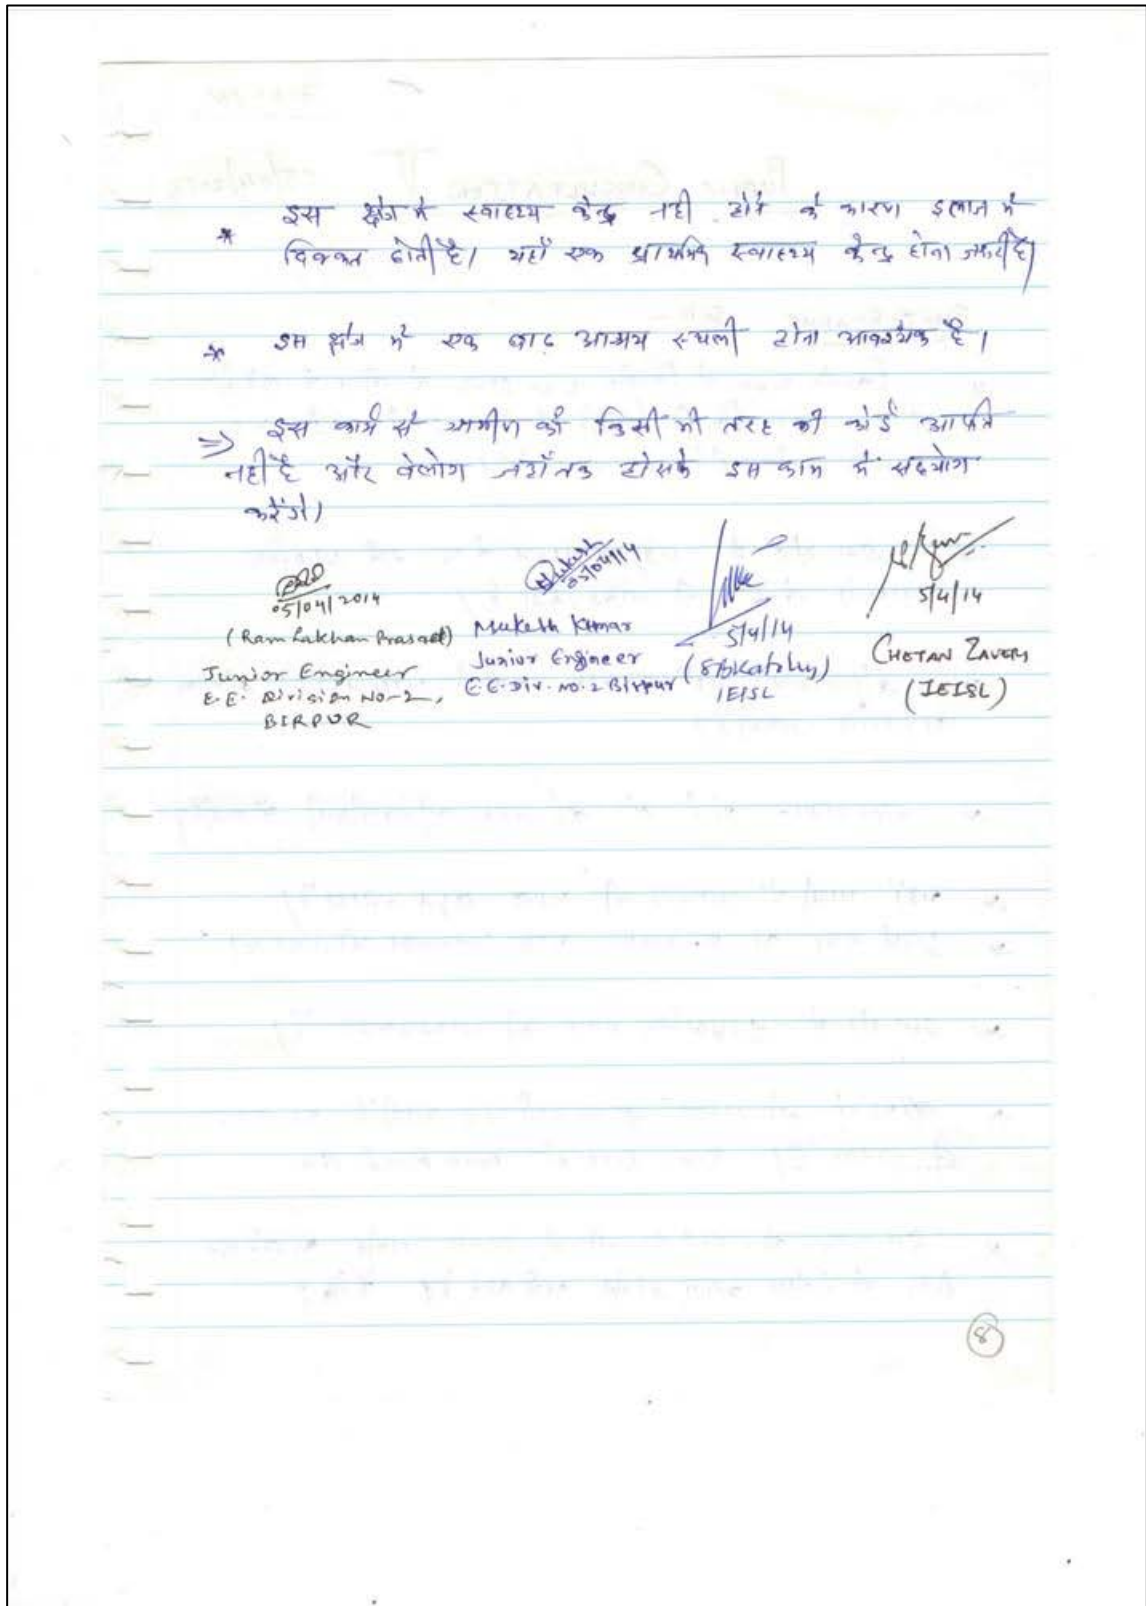 * इस क्षेत्र में स्वास्थ्य केन्द्र नही होने के कारण इलाज में
दिक्कत होती है। यहाँ एक प्राथमिक स्वास्थ्य केन्द्र होना जरूरी है।
* इस क्षेत्र में एक बाढ़ आश्रय स्थली होना आवश्यक है।
=> इस कार्य से ग्रामीण को किसी भी तरह की कोई आपत्ति
नहीं है और वेलोग जहाँतक होसके इस काम में सहयोग
करेंगे।
05/04/2014
(Ram Lakhan Prasad)
Junior Engineer
E.E. Division No-2,
BIRPUR
Mukesh
05/04/14
Mukesh Kumar
Junior Engineer
E.E. Div. No. 2 Birpur
5/4/14
IEISL
5/4/14
CHETAN ZAVERI
(IEISL)
8